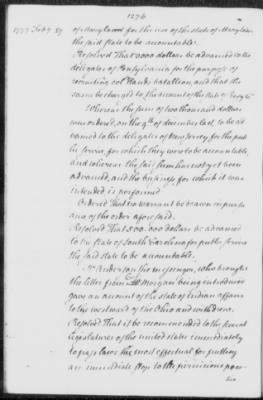 1276
of Maryland for the use of the state of Maryland
the said state to be accountable.
Resolved That 5000 dollars be advanced to the
delegates of Pensylvania for the purpose of
recruiting col Hands batallion, and that the
same be charged to the account of the state
Whereas the sum of two thousand dollars
was ordered, on the 9th of december last, to be ad
vanced to the delegates of New Jersey for the publ
ic service, for which they were to be accountable,
and whereas the said sum has not yet been
advanced, and the business for which it was
intended is performed
Ordered That no warrant be drawn in pursu
ance of the order aforesaid.
Resolved That 300,000 dollars be advanced
to the state of South Carolina for public service
the said state to be accountable.
Mr Anderson the messenger, who brought
the letter from Morgan being introduced
gave an account of the state of indian affairs
to the westward of the Ohio and withdrew.
Resolved That it be recommended to the several
legislatures of the united states immediately
to pass laws the most effectual for putting
an immediate stop to the pernicious prac